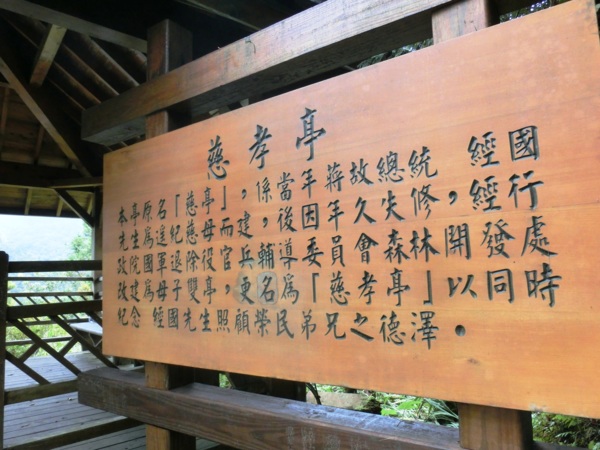 慈孝亭
本亭原名「慈亭」，係當年蔣故總統 經國
先生為追紀慈母而建，後因年久失修，經行
政院國軍退除役官兵輔導委員會森林開發處
改建為母子雙亭，更名為「慈孝亭」以同時
紀念 經國先生照顧榮民弟兄之德澤。